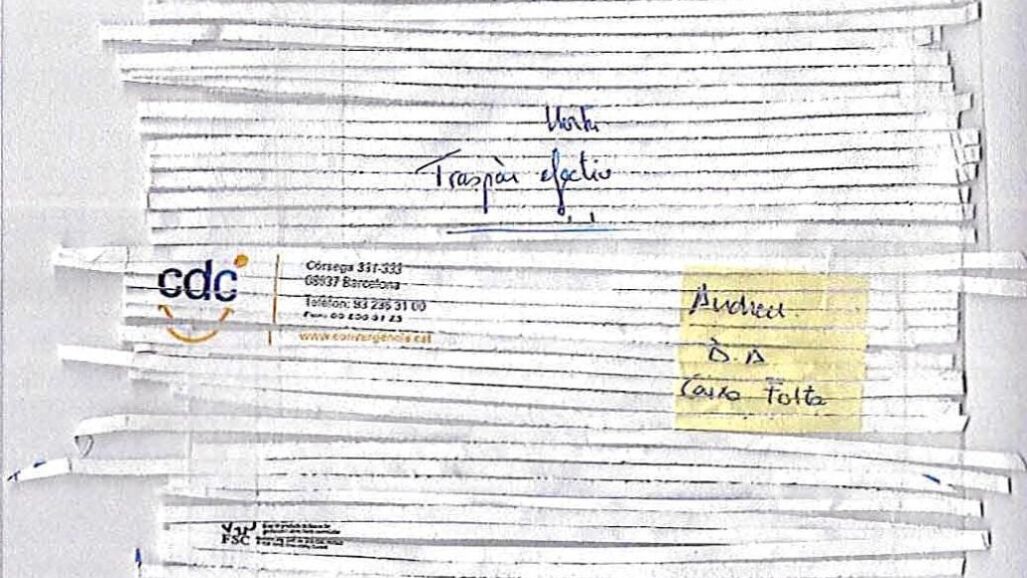 Traspàs efectiu
cdc
Còrsega 331-333
08037 Barcelona
Telèfon: 93 236 31 00
www.convergencia.cat
Andreu
D. A
Caixa Forta
FSC